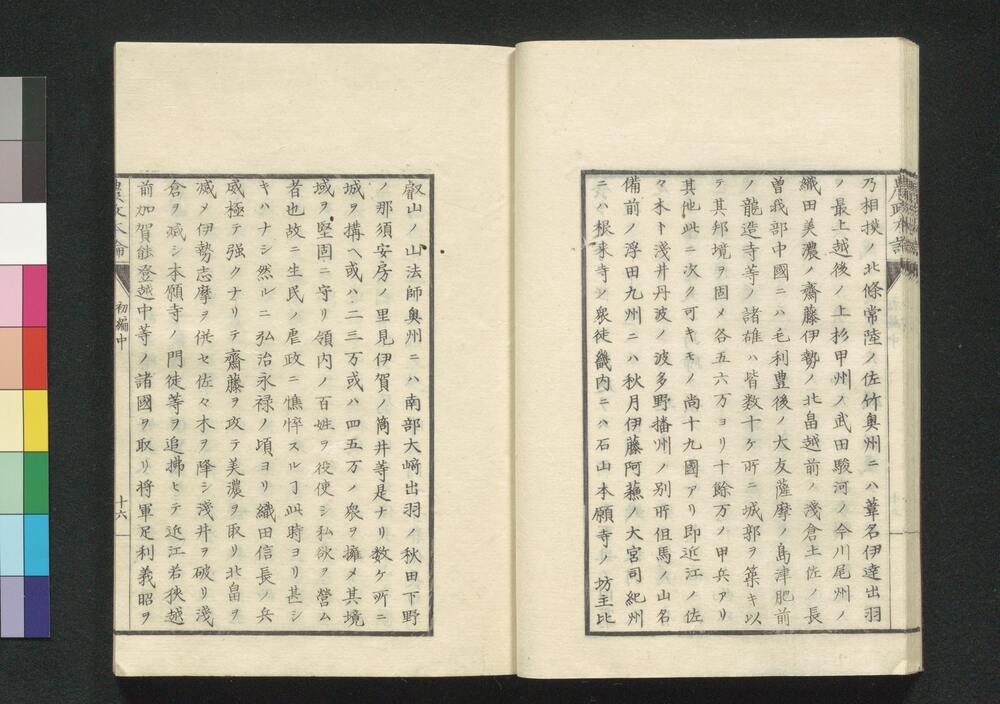 乃相摸ノ北條常陸ノ佐竹奥州ニハ葦名伊達出羽
ノ最上越後ノ上杉甲州ノ武田駿河ノ今川尾州ノ
織田美濃ノ齋藤伊勢ノ北畠越前ノ淺倉土佐ノ長
曽我部中國ニハ毛利豊後ノ大友薩摩ノ島津肥前
ノ龍造寺等ノ諸雄ハ皆数十ケ所ニ城郭ヲ築キ以
テ其邦境ヲ固メ各五六万ヨリ十餘万ノ甲兵アリ
其他此ニ次ク可キモノ尚十九國アリ即近江ノ佐
々木ト淺井丹波ノ波多野播州ノ別所但馬ノ山名
備前ノ浮田九州ニハ秋月伊藤阿蘓ノ大宮司紀州
ニハ根来寺ノ衆徒畿内ニハ石山本願寺ノ坊主比
叡山ノ山法師奥州ニハ南部大﨑出羽ノ秋田下野
ノ那須安房ノ里見伊賀ノ筒井等是ナリ数ケ所ニ
城ヲ搆ヘ或ハ二三万或ハ四五万ノ衆ヲ擁メ其境
域ヲ堅固ニ守リ領内ノ百姓ヲ役使シ私欲ヲ營ム
者也故ニ生民ノ虐政ニ憔悴スルヿ此時ヨリ甚シ
キハナシ然ルニ弘治永禄ノ頃ヨリ織田信長ノ兵
威極テ強クナリテ齋藤ヲ攻テ美濃ヲ取リ北畠ヲ
滅メ伊勢志摩ヲ併セ佐々木ヲ降シ淺井ヲ破リ淺
倉ヲ滅シ本願寺ノ門徒等ヲ追拂ヒテ近江若狹越
前加賀能登越中等ノ諸國ヲ取リ将軍足利義昭ヲ
農政本論
初編中
十六